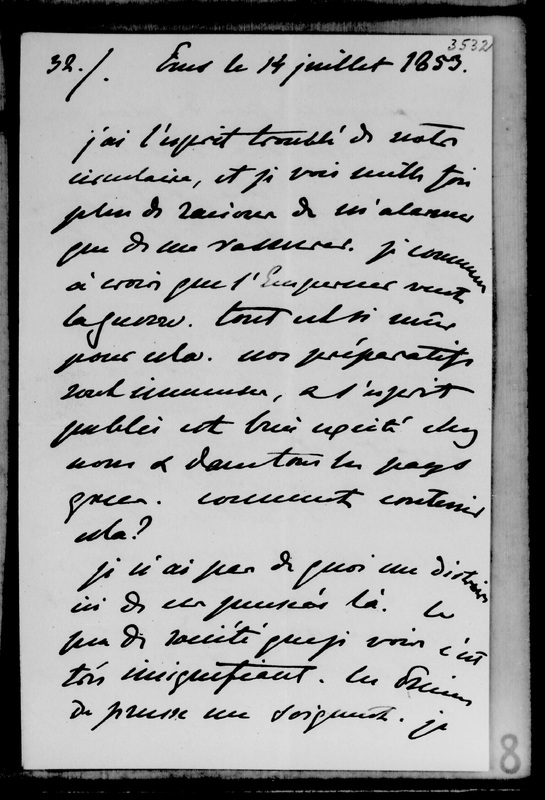 3532
32./. Ems le 14 juillet 1853.
j'ai l'esprit troublé de votre
circulaire, et je vois mille fois
plus de raisons de m'alarmer
que de me rassurer. je commence
à croire que l'Empereur veut
la guerre. tout est si mûr
pour cela. nos préparatifs
sont immenses, & l'esprit
public est bien excité chez
nous & dans tous les pays
grecs. comment contenir
cela?
je n'ai pas de quoi me distraire
ici de ces pensées là. le
peu de société que je vois c'est
très insignifiant. les Princes
de prusse me soignent. je
8